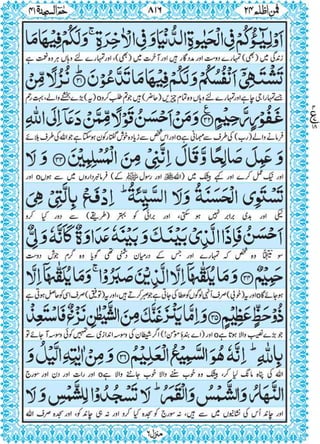 فمن اظلم ٢٤
٨١٦
حٰمٓ السجدة ٤١
اَوْلِیٰٓؤُكُمْ فِی الْحَیٰوةِ الدُّنْیَا وَ فِی الْاٰخِرَةِ ۚ وَ لَكُمْ فِیْهَا مَا
زندگی میں (بھی) تمہارے دوست اور مددگار ہیں اور آخرت میں (بھی)، اور تمہارے لئے وہاں ہر وہ نعمت ہے
تَشْتَهِیْۤ اَنْفُسُكُمْ وَ لَكُمْ فِیْهَا مَا تَدَّعُوْنَ ﴿۳۱﴾ نُزُلًا مِّنْ
جسے تمہارا جی چاہے اور تمہارے لئے وہاں وہ تمام چیزیں (حاضر) ہیں جو تم طلب کرو (یہ) بڑے بخشنے والے، بہت رحم
غَفُوْرٍ رَّحِیْمٍ ﴿۳۲﴾ وَ مَنْ اَحْسَنُ قَوْلًا مِّمَّنْ دَعَاۤ اِلَی اللّٰهِ
فرمانے والے (رب) کی طرف سے مہمانی ہے اور اس شخص سے زیادہ خوش گفتار کون ہو سکتا ہے جو اللہ کی طرف بلائے
وَ عَمِلَ صَالِحًا وَّ قَالَ اِنَّنِیْ مِنَ الْمُسْلِمِیْنَ ﴿۳۳﴾ وَ لَا
اور نیک عمل کرے اور کہے بیشک میں (اللہ اور رسول کے) فرمانبرداروں میں سے ہوں اور
تَسْتَوِی الْحَسَنَةُ وَ لَا السَّیِّئَةُ ؕ اِدْفَعْ بِالَّتِیْ هِیَ
نیکی اور بدی برابر نہیں ہو سکتی، اور برائی کو بہتر (طریقے) سے دور کیا کرو
اَحْسَنُ فَاِذَا الَّذِیْ بَیْنَكَ وَ بَیْنَهٗ عَدَاوَةٌ كَاَنَّهٗ وَلِیٌّ
سو نتیجتاً وہ شخص کہ تمہارے اور جس کے درمیان دشمنی تھی گویا وہ گرم جوش دوست
حَمِیْمٌ ﴿۳۴﴾ وَ مَا یُلَقّٰىهَاۤ اِلَّا الَّذِیْنَ صَبَرُوْا ۚ وَ مَا یُلَقّٰىهَاۤ اِلَّا
ہو جائے گا اور یہ (خوبی) صرف اُنہی لوگوں کو عطا کی جاتی ہے جو صبر کرتے ہیں، اور یہ (توفیق) صرف اسی کو حاصل ہوتی ہے
ذُوْ حَظٍّ عَظِیْمٍ ﴿۳۵﴾ وَ اِمَّا یَنْزَغَنَّكَ مِنَ الشَّیْطٰنِ نَزْغٌ فَاسْتَعِذْ
جو بڑے نصیب والا ہوتا ہے اور (اے بندۂ مومن!) اگر شیطان کی وسوسہ اندازی سے تمہیں کوئی وسوسہ آ جائے تو
بِاللّٰهِ ؕ اِنَّهٗ هُوَ السَّمِیْعُ الْعَلِیْمُ ﴿۳۶﴾ وَ مِنْ اٰیٰتِهِ الَّیْلُ وَ
اللہ کی پناہ مانگ لیا کرو، بیشک وہ خوب سننے والا خوب جاننے والا ہے اور رات اور دن اور سورج
النَّهَارُ وَ الشَّمْسُ وَ الْقَمَرُ ؕ لَا تَسْجُدُوْا لِلشَّمْسِ وَ لَا
اور چاند اُس کی نشانیوں میں سے ہیں، نہ سورج کو سجدہ کیا کرو اور نہ ہی چاند کو، اور سجدہ صرف اللہ
منزل ٦